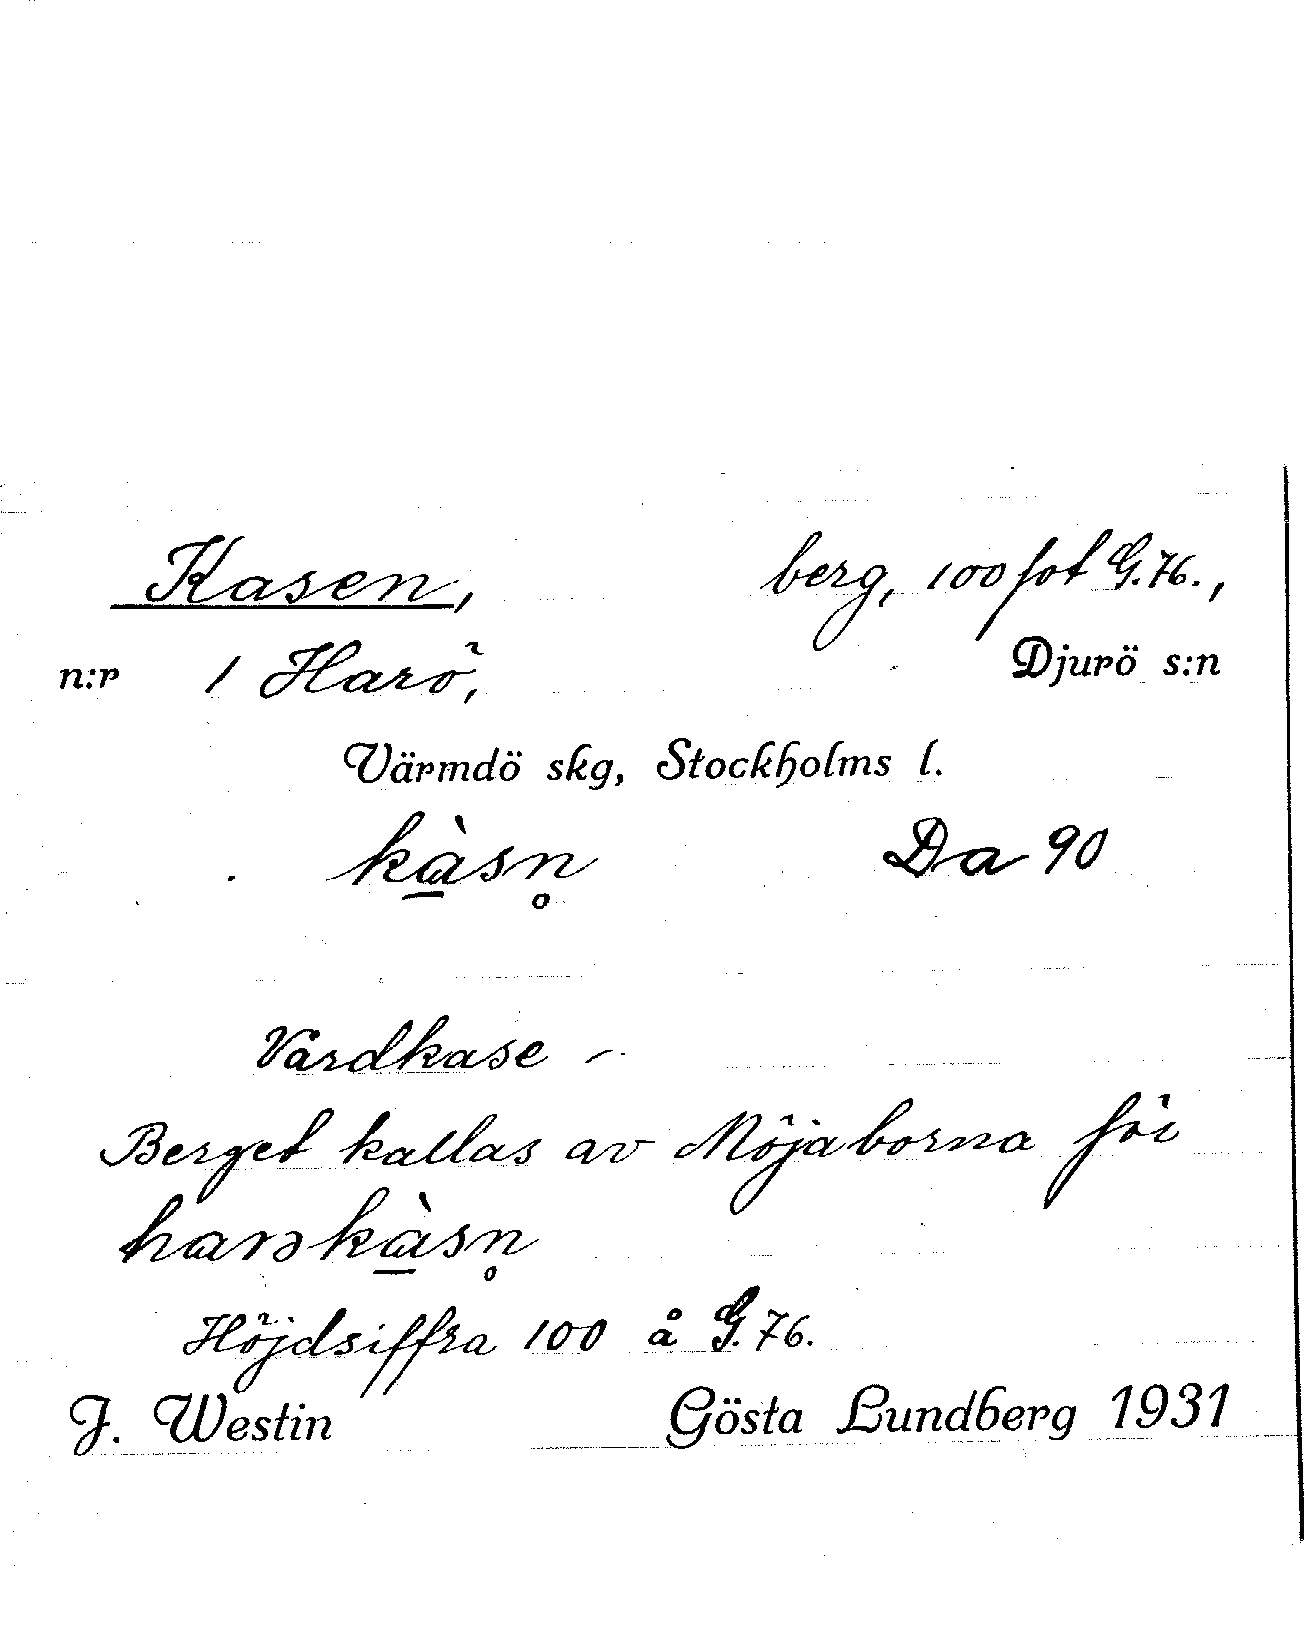 Kasen, berg, 100 fot G.76.,
n:r 1 Harö, Djurö s:n
Värmdö skg, Stockholms l.
kàsn̥ Da 90
Vårdkase –
Berget kallas av Möjaborna för
harskàsn̥
Höjdsiffra 100 å G.76.
J. Westin Gösta Lundberg 1931